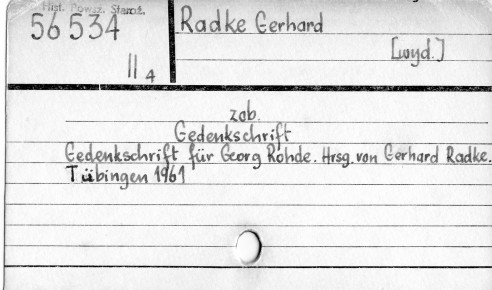 Hist. Powsz. Staroż.
56 534
II 4
Radke Gerhard
[wyd.]
zob.
Gedenkschrift
Gedenkschrift für Georg Rohde. Hrsg. von Gerhard Radke.
Tübingen 1961